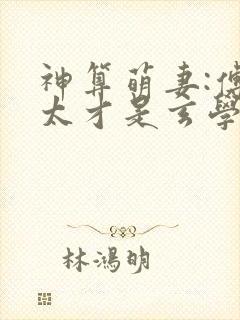 神算萌妻:傅
太才是玄學
林鴻明